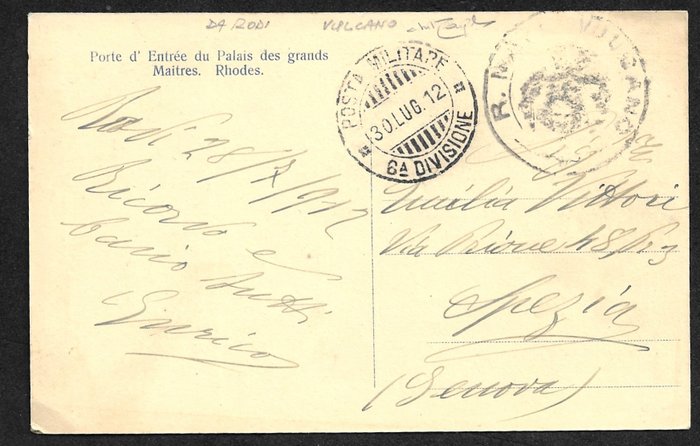 DA RODI VULCANO
Porte d' Entrée du Palais des grands
Maitres. Rhodes.
POSTA MILITARE
30 LUG. 12
6A DIVISIONE
R. N. VULCANO
Rodi 28/7/912
Ricordo e
bacio tutti
Enrico
Emilia Vittori
Via Prione 48 
Spezia
(Genova)